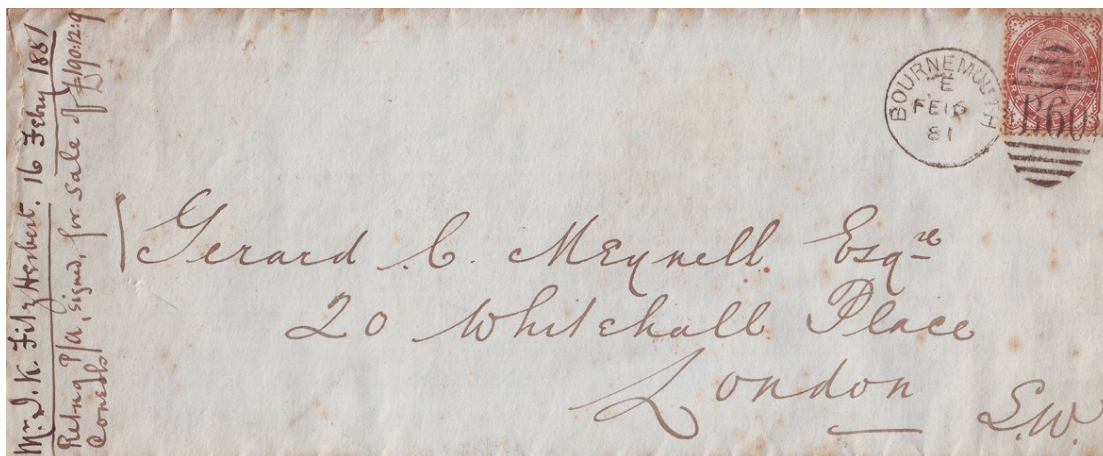 Mr. J. K. Fitz Herbert. 16 Febry 1881
Retng P/a, signed, for sale of £190:12:9
Consols
BOURNEMOUTH
E
FE 16
81
B60
Gerard C. Meynell Esqre
20 Whitehall Place
London
S.W.